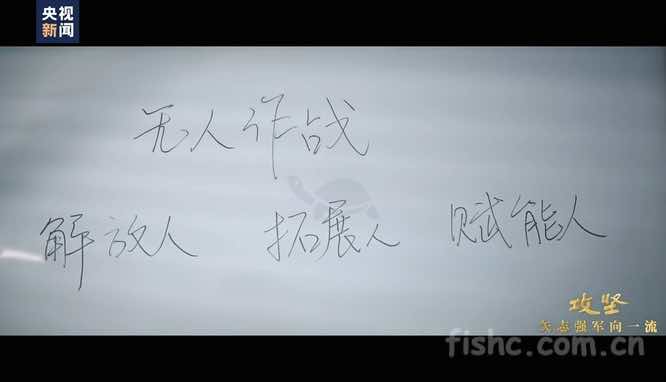 央视
新闻
无人作战
解放人 拓展人 赋能人
攻坚
矢志强军向一流
fishc.com.cn